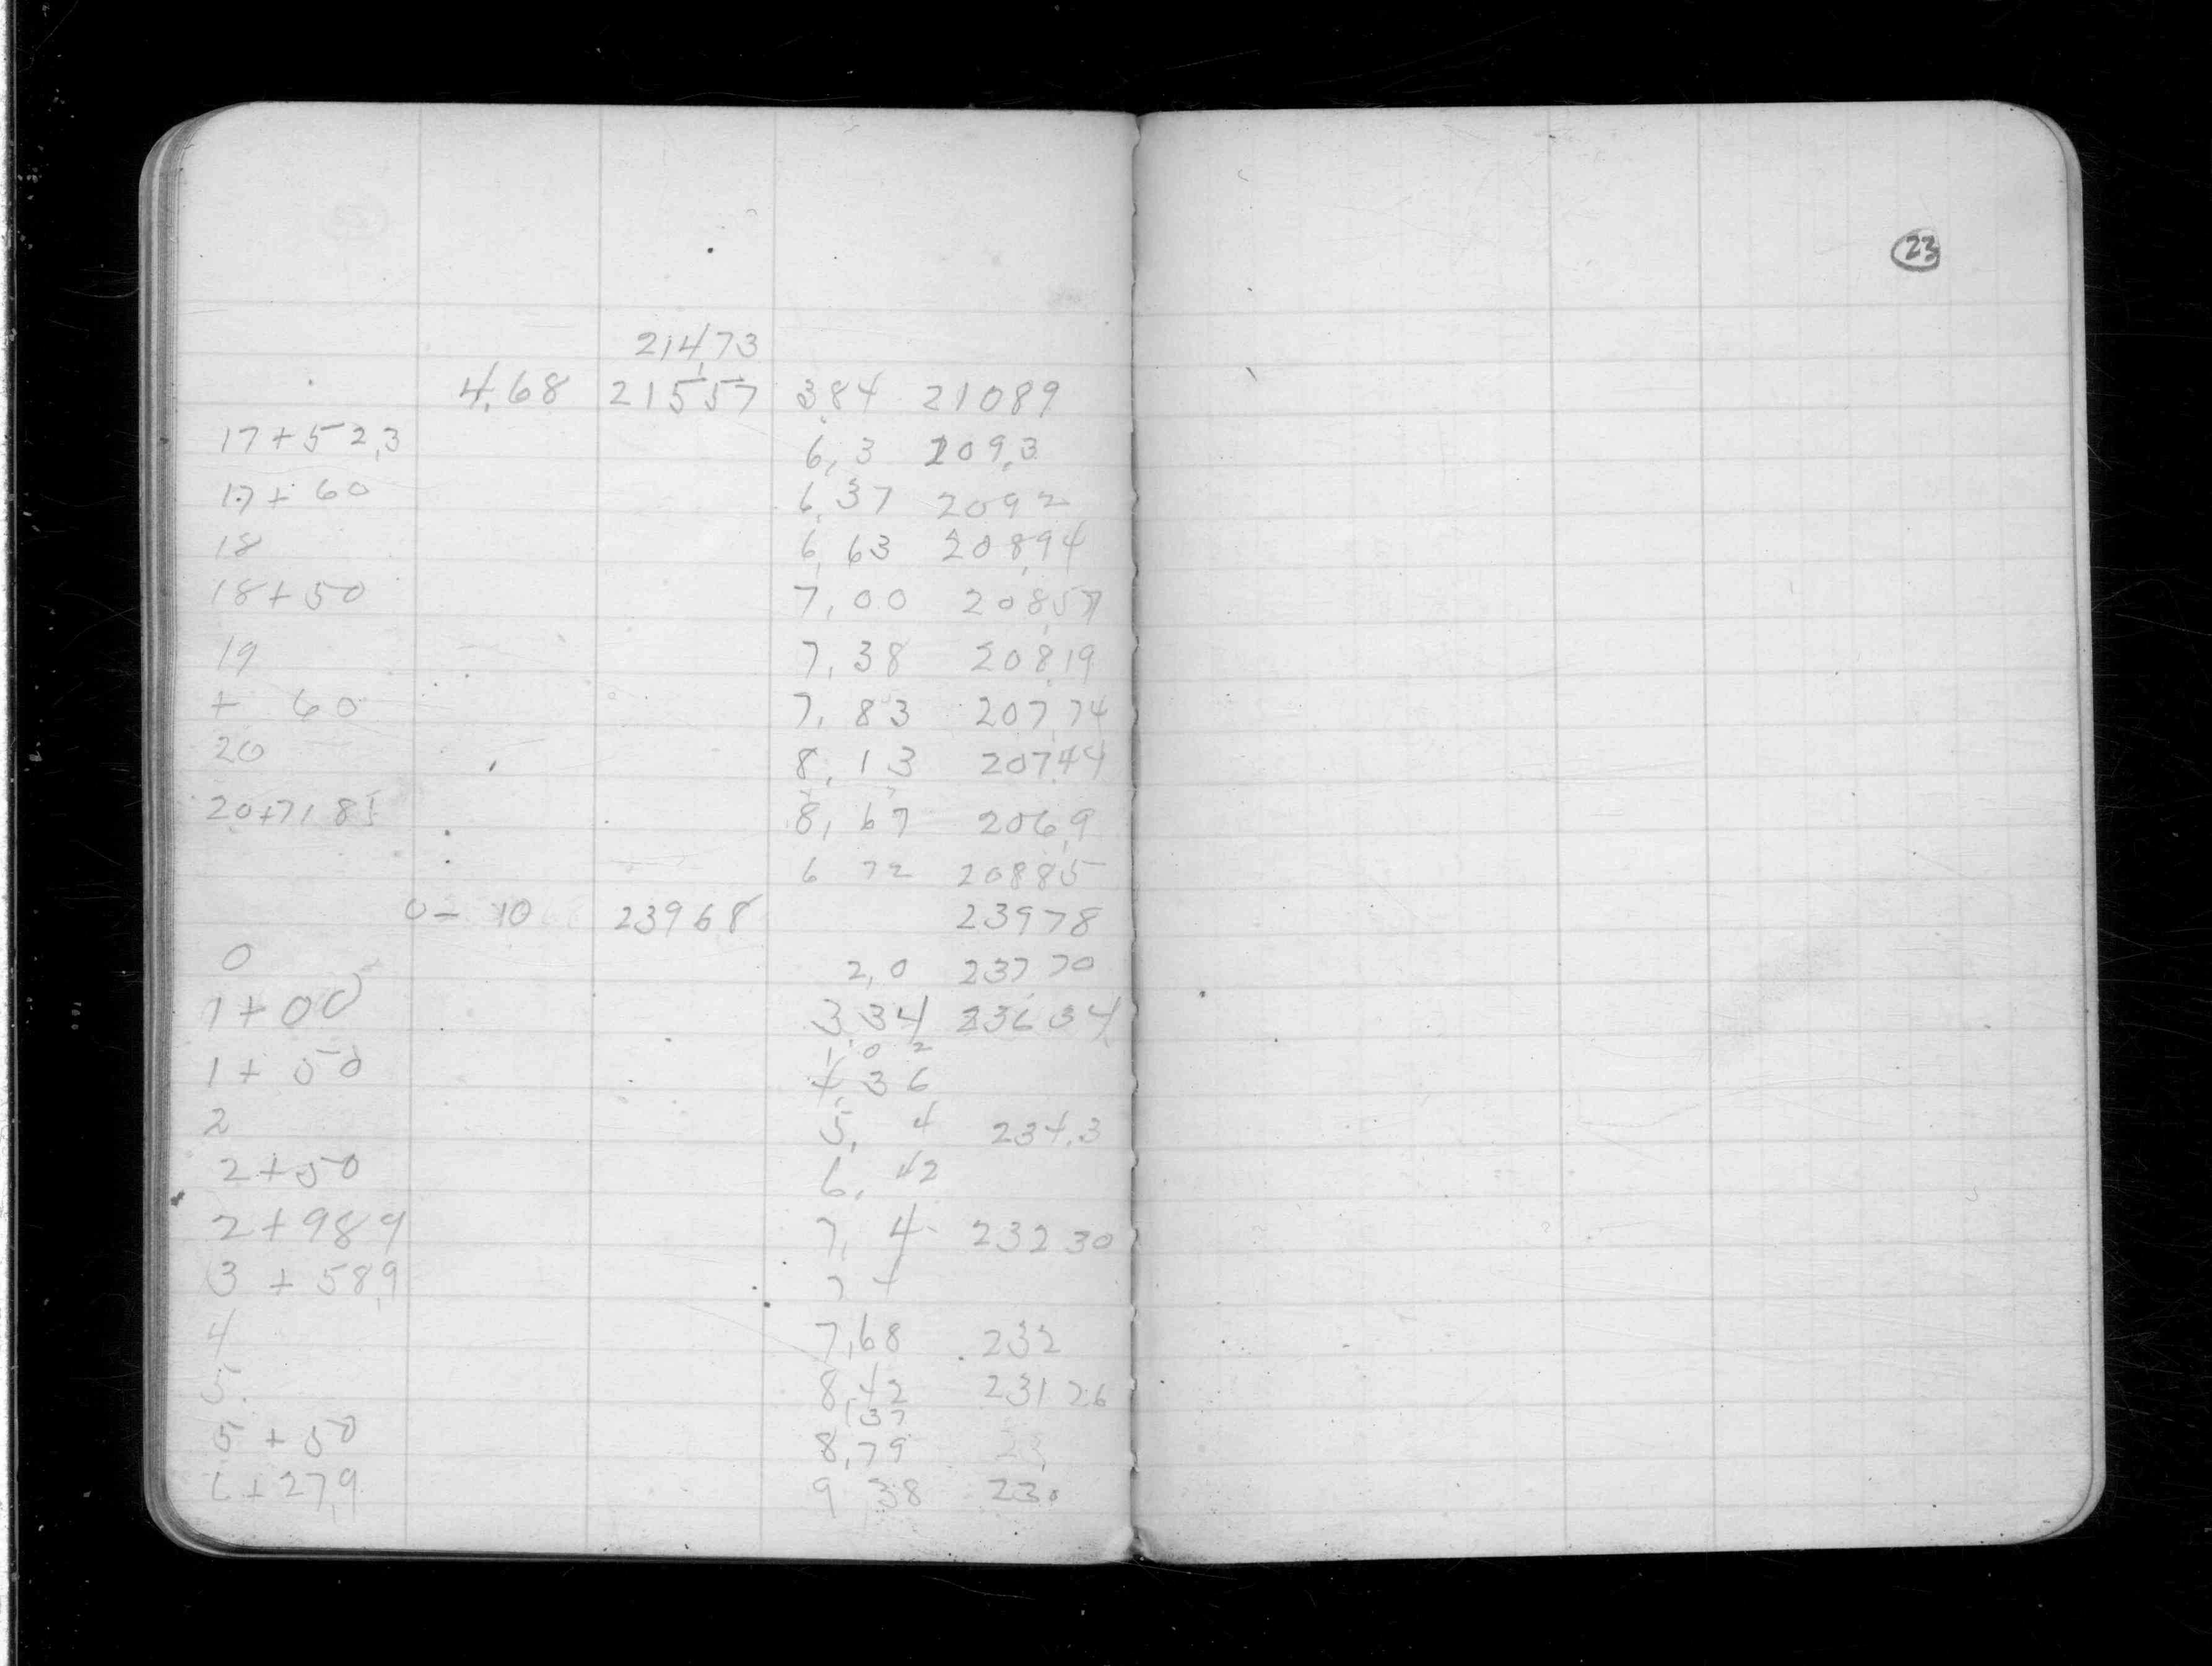 23
21473
4.68 21557 3.84 21089
17+52.3 6.3 209.3
17+60 6.37 2092
18 6.63 208.94
18+50 7.00 208.57
19 7.38 208.19
+ 60 7.83 207.74
20 8.13 207.44
20+71.85 8.67 206.9
6 72 20885
0 - 10 23968 23978
0 2.0 23770
1+00 3.34 23634
1.02
1+50 4.36
2 5. 4 234.3
2+50 6.42
2+989 7. 4 232 30
3+58.9 7 4
4 7.68 232
5. 8.42 231 26
.37
5+50 8.79
+27.9 9 38 230